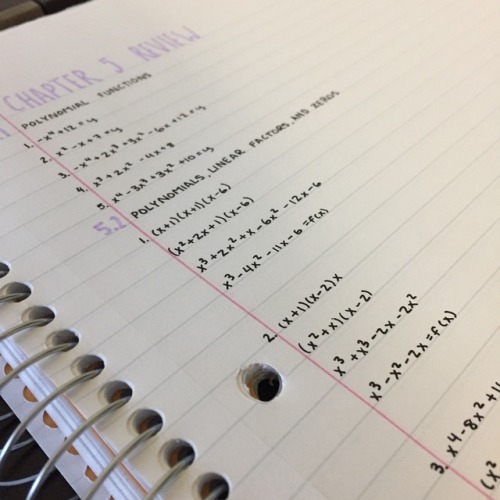 CHAPTER 5 REVIEW
POLYNOMIAL FUNCTIONS
1. -x⁴+12=y
2. x²-x+7=y
3. -x⁴+2x³+3x²-6x+12=y
4. x³+2x²-4x+8
5. x⁴-3x³+3x²+10=y
5.2 POLYNOMIALS, LINEAR FACTORS, AND ZEROS
1. (x+1)(x+1)(x-6)
(x²+2x+1)(x-6)
x³+2x²+x-6x²-12x-6
x³-4x²-11x-6=f(x)
2. (x+1)(x-2)x
(x²+x)(x-2)
x³+x³-2x-2x²
x³-x²-2x=f(x)
3. x4-8x²+
(x²